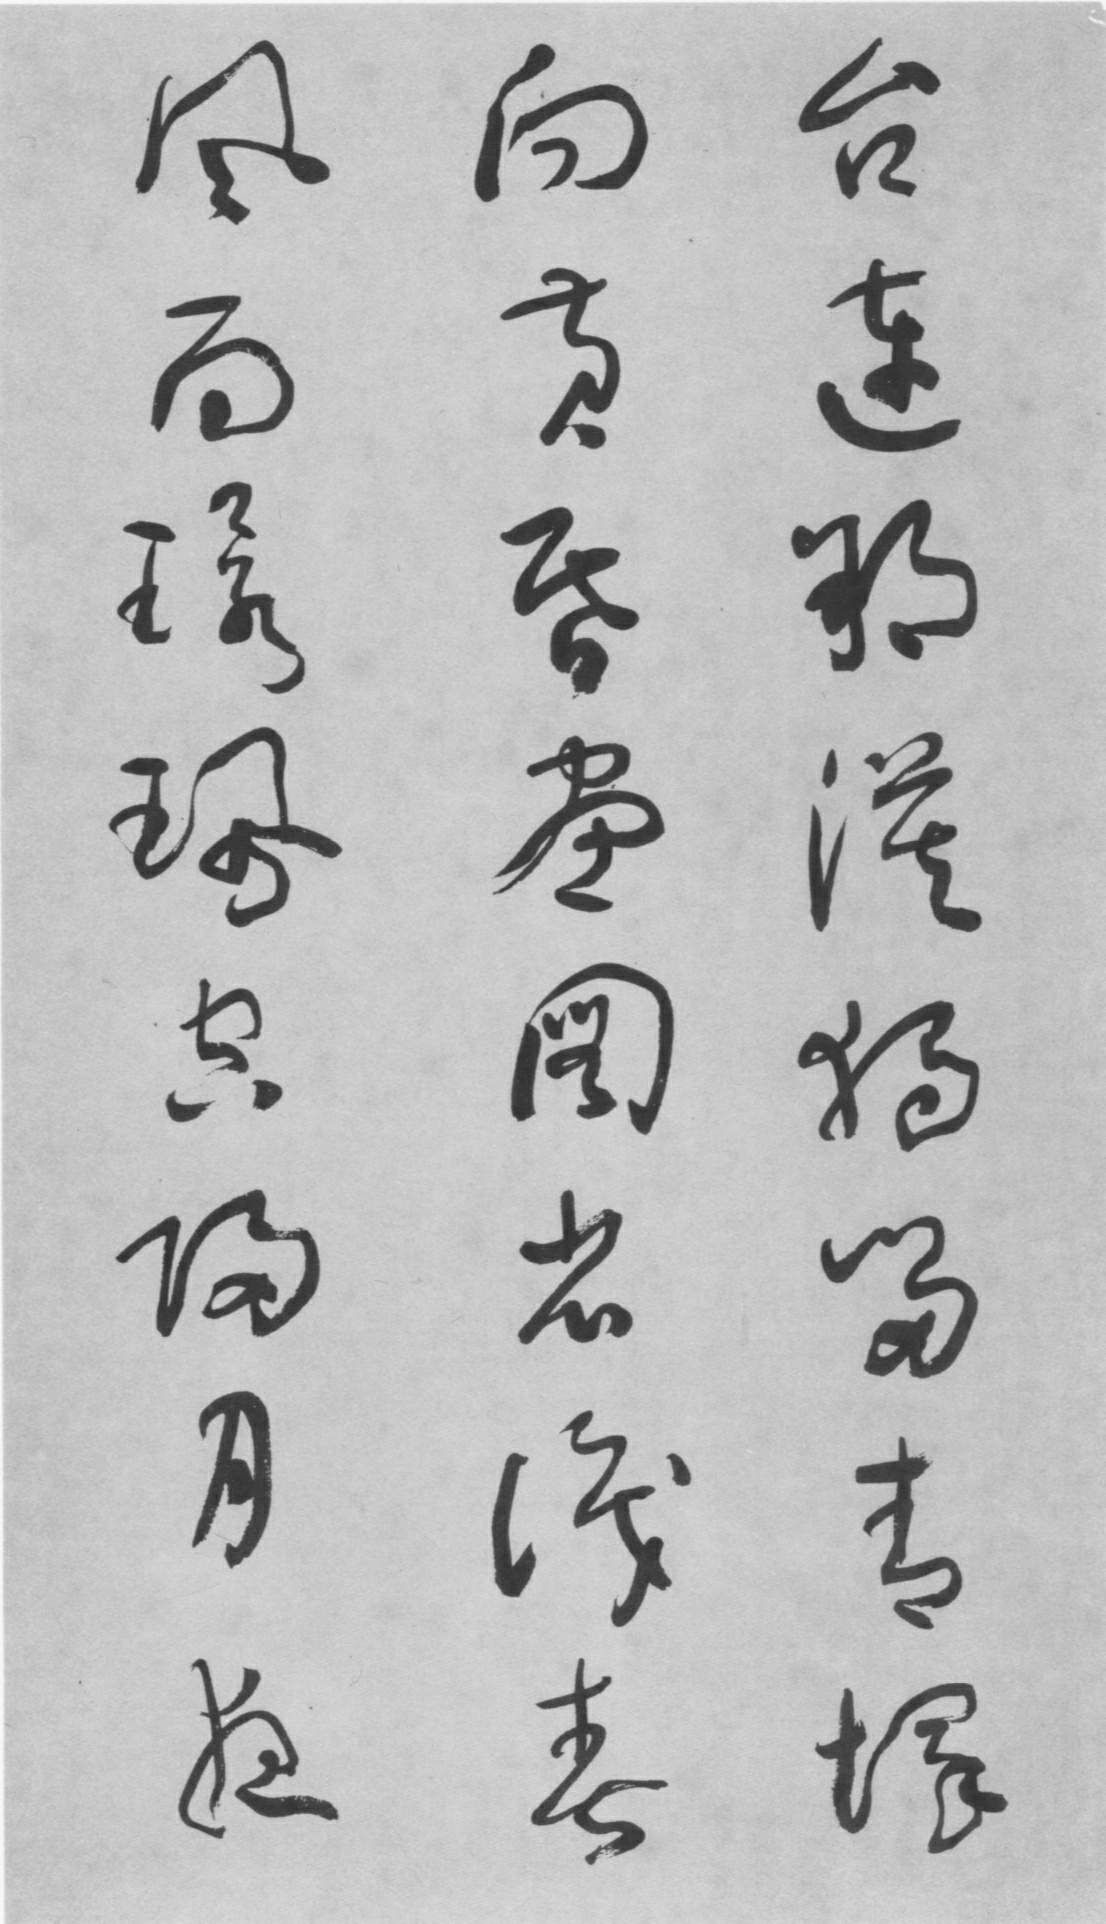 台連朔漠獨留青塚
向黃昏畫圖省識春
風面環珮空歸月夜